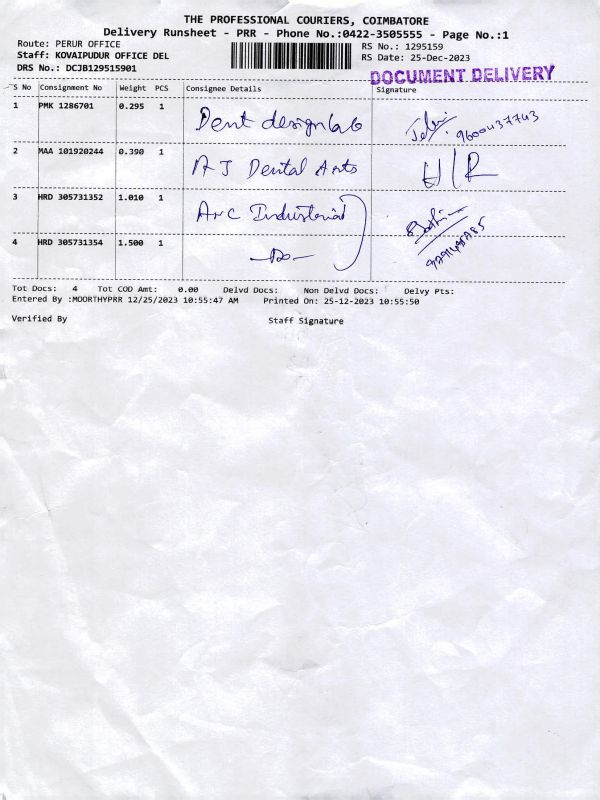 THE PROFESSIONAL COURIERS, COIMBATORE
Delivery Runsheet - PRR - Phone No.:0422-3505555 - Page No.:1
Route: PERUR OFFICE
Staff: KOVAIPUDUR OFFICE DEL
DRS No.: DCJB129515901
RS No.: 1295159
RS Date: 25-Dec-2023
DOCUMENT DELIVERY
S No Consignment No Weight PCS Consignee Details Signature
1 PMK 1286701 0.295 1 Dent design lab 9600437743
2 MAA 101920244 0.390 1 A J Dental Arts H/R
3 HRD 305731352 1.010 1 Arc Industrial
4 HRD 305731354 1.500 1 -Do-
Tot Docs: 4 Tot COD Amt: 0.00 Delvd Docs: Non Delvd Docs: Delvy Pts:
Entered By :MOORTHYPRR 12/25/2023 10:55:47 AM Printed On: 25-12-2023 10:55:50
Verified By Staff Signature